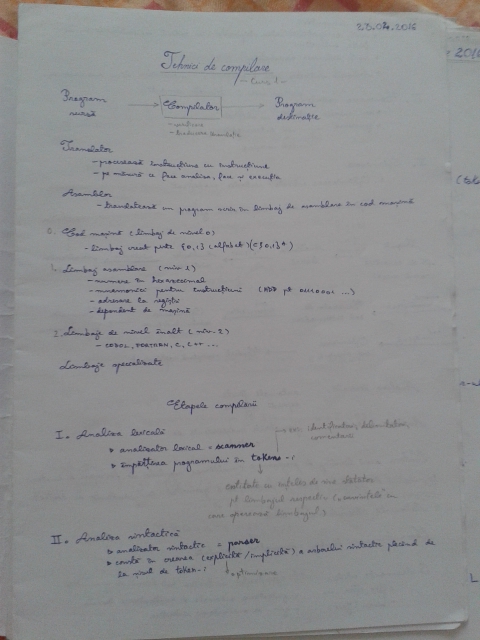 23.02.2016
Tehnici de compilare
- Curs 1 -
Program sursă → Compilator → Program destinație
- analiza
Translator
- procesează instrucțiune cu instrucțiune
- pe măsură ce face analiza, face și execuția
Asamblor
- translatează un program scris în limbaj de asamblare în cod mașină
0. Cod mașină (limbaj de nivel 0)
- limbaj creat peste {0,1} (alfabet) ({0,1}*)
1. Limbaj asamblare (niv. 1)
- numere în hexazecimal
- mnemonici pentru instrucțiuni (ADD pt 0110001 ...)
- adresare la regiștri
- dependent de mașină
2. Limbaje de nivel înalt (niv. 2)
- COBOL, FORTRAN, C, C++ ...
Limbaje specializate
Etapele compilării
I. Analiza lexicală
→ ex: identificatori, delimitatori,
comentarii
▸ analizator lexical = scanner
▸ împărțirea programului în token-i
entitate cu înțeles de sine stătător
pt limbajul respectiv ("cuvintele" în
care operează limbajul)
II. Analiza sintactică
▸ analizator sintactic = parser
▸ constă în crearea (explicită/implicită) a arborelui sintactic plecând de
la șirul de token-i
↓ optimizare